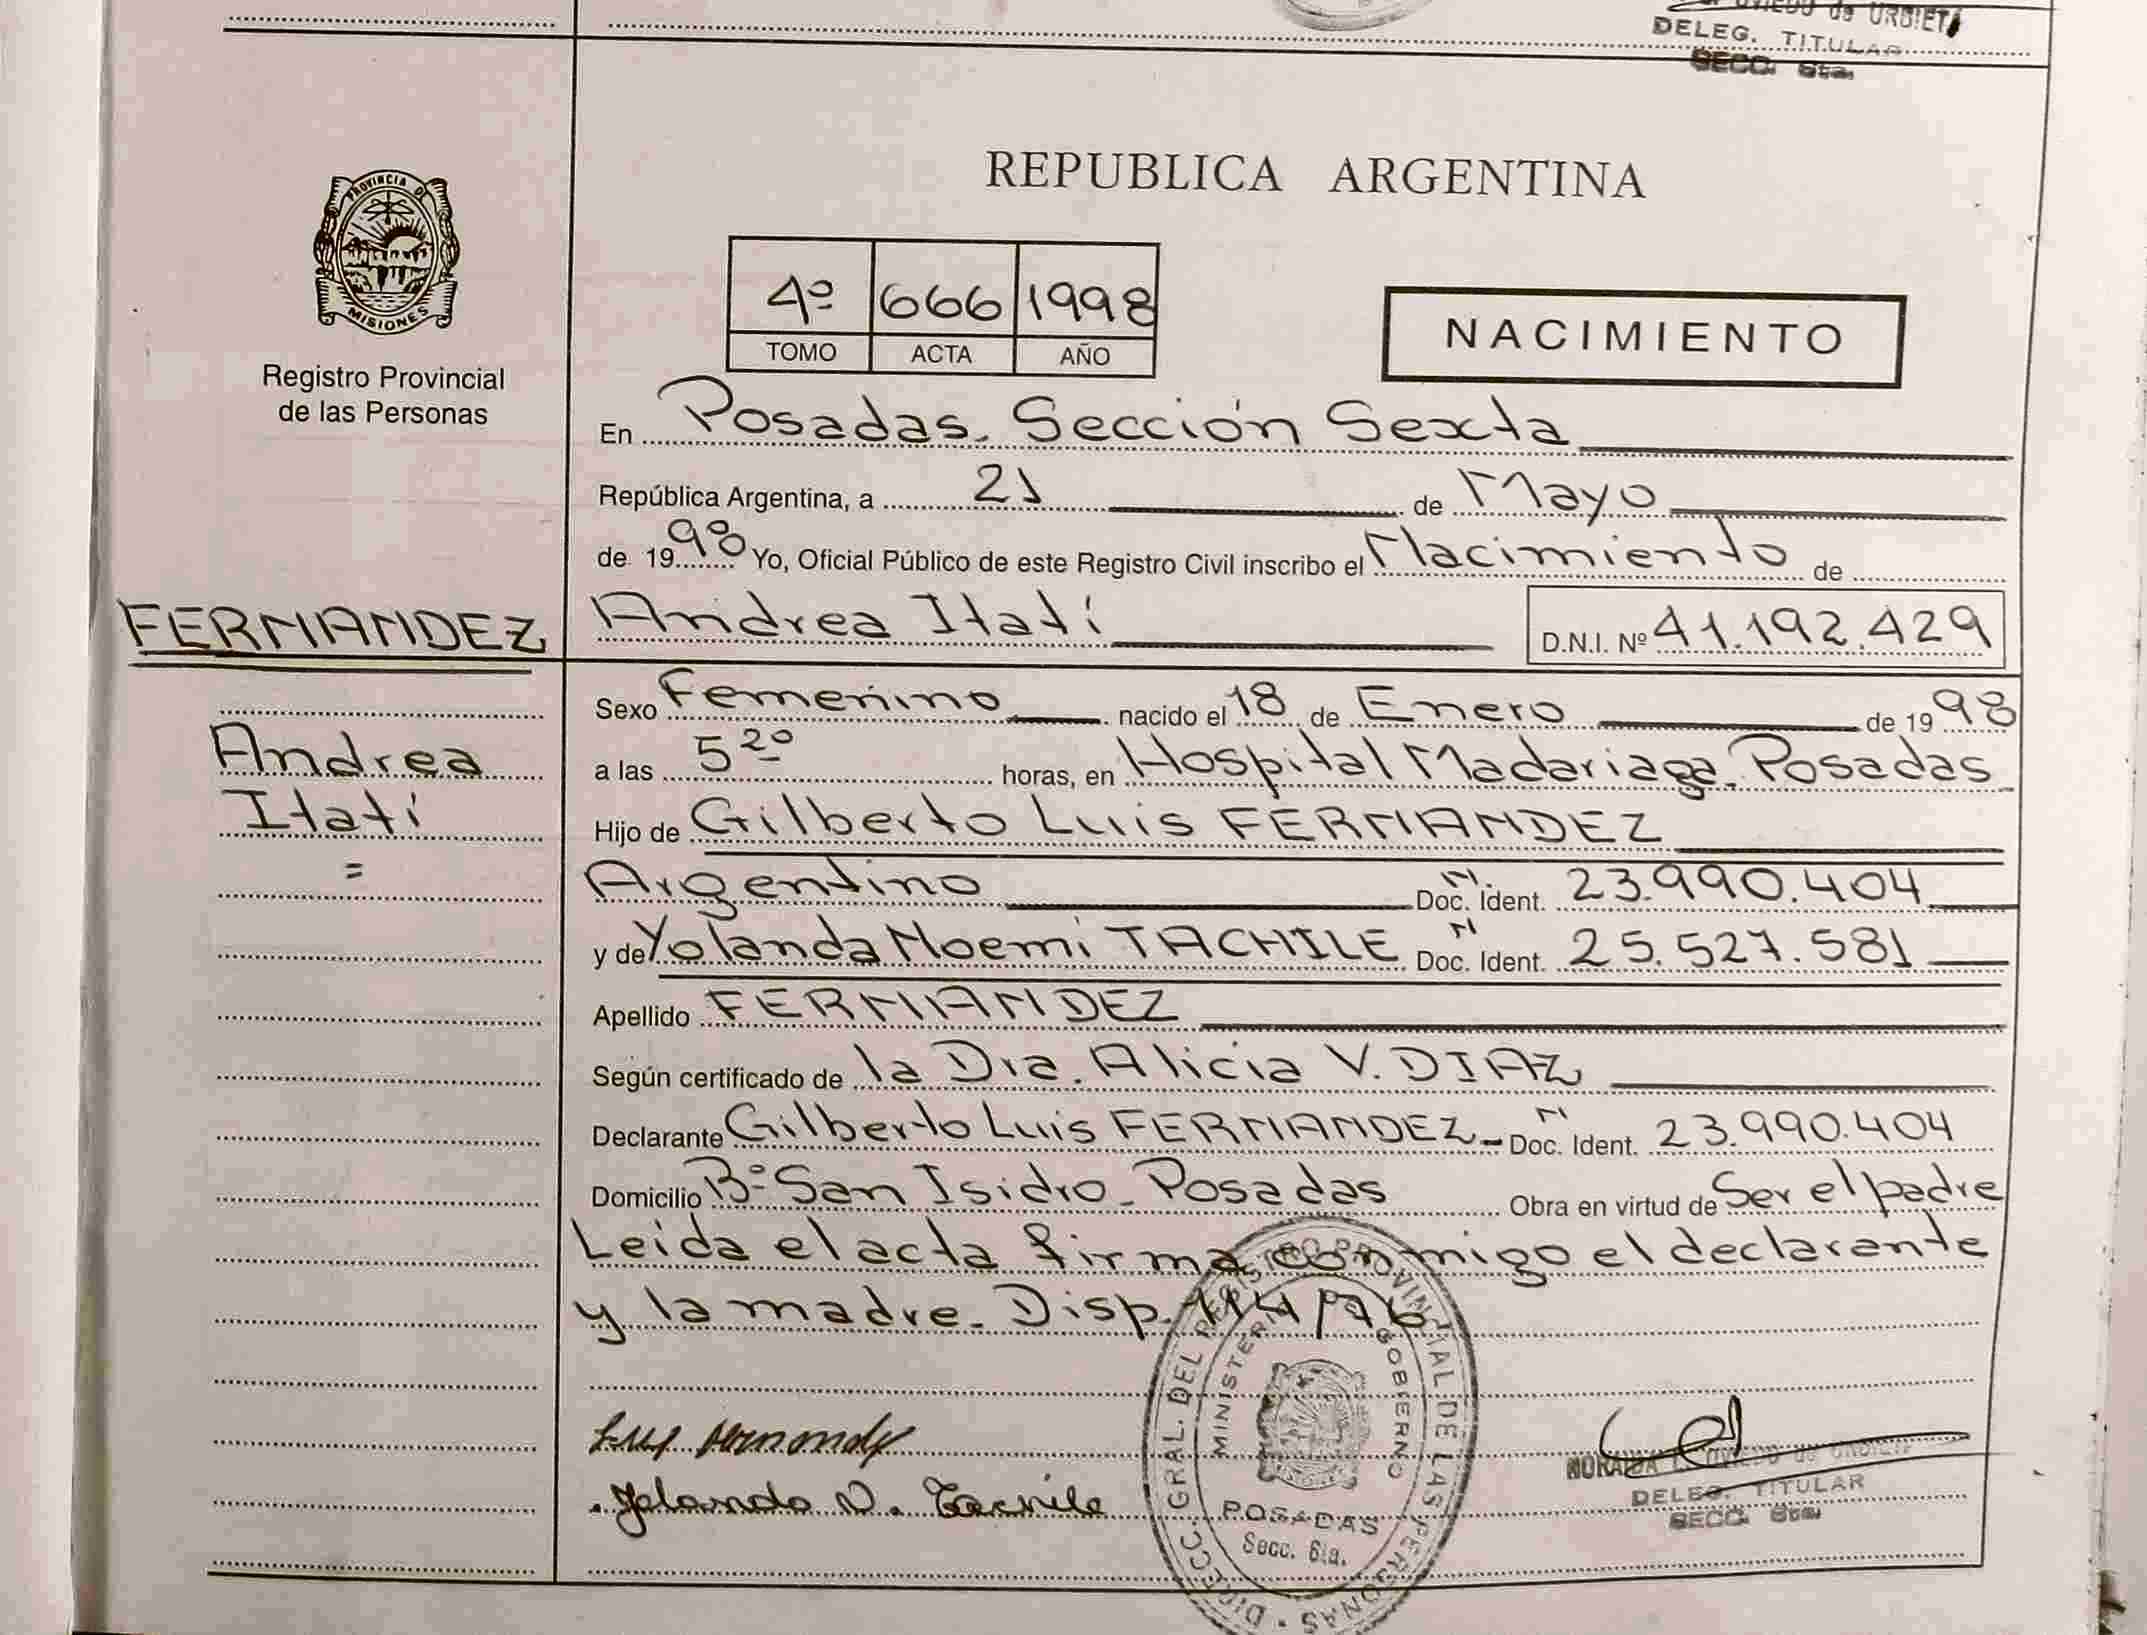 OVIEDO de URBIETA
DELEG. TITULAR
SECC. 6ta.
PROVINCIA DE
MISIONES
Registro Provincial
de las Personas
REPUBLICA ARGENTINA
4º 666 1998
TOMO ACTA AÑO
NACIMIENTO
En Posadas. Sección Sexta
República Argentina, a 21 de Mayo
de 1998 Yo, Oficial Público de este Registro Civil inscribo el Nacimiento de
FERNANDEZ Andrea Itatí D.N.I. Nº 41.192.429
Sexo Femenino nacido el 18 de Enero de 1998
Andrea a las 5 20 horas, en Hospital Madariaga. Posadas
Itatí Hijo de Gilberto Luis FERNANDEZ
= Argentino N. Doc. Ident. 23.990.404
y de Yolanda Noemi TACHILE N Doc. Ident. 25.527.581
Apellido FERNANDEZ
Según certificado de la Dra. Alicia V. DIAZ
Declarante Gilberto Luis FERNANDEZ N Doc. Ident. 23.990.404
Domicilio Bº San Isidro - Posadas Obra en virtud de Ser el padre
Leida el acta firma conmigo el declarante
y la madre. Disp. 114/76
Yolanda N. Tachile
DELEG. TITULAR
SECC. 6ta.
DIRECC. GRAL. DEL REGISTRO PROVINCIAL DE LAS PERSONAS
MINISTERIO DE GOBIERNO
POSADAS
Secc. 6ta.